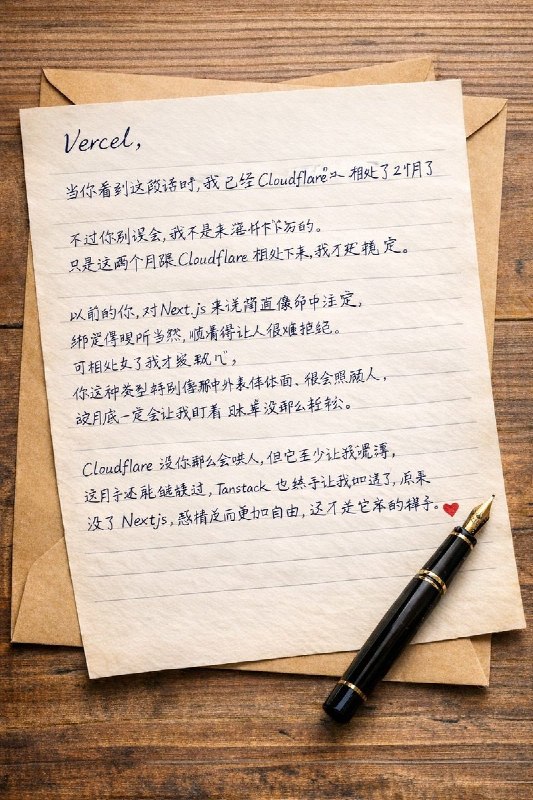 Vercel,
当你看到这段话时,我已经Cloudflare 相处了2个月了
不过你别误会,我不是来落井下石的。
只是这两个月跟Cloudflare 相处下来,我才 定。
以前的你,对Next.js来说简直像命中注定,
绑定得理所当然,顺着得让人很难拒绝。
可相处久了我才发现,
你这种类型特别像那中外表体体面、很会照顾人,
月底一定会让我盯着 单没那么轻松。
Cloudflare 没你那么会哄人,但它至少让我
这月子还能继续过, Tanstack 也终于让我知道了,原来
没了Nextjs,感情反而更加自由,这才是它 的样子。